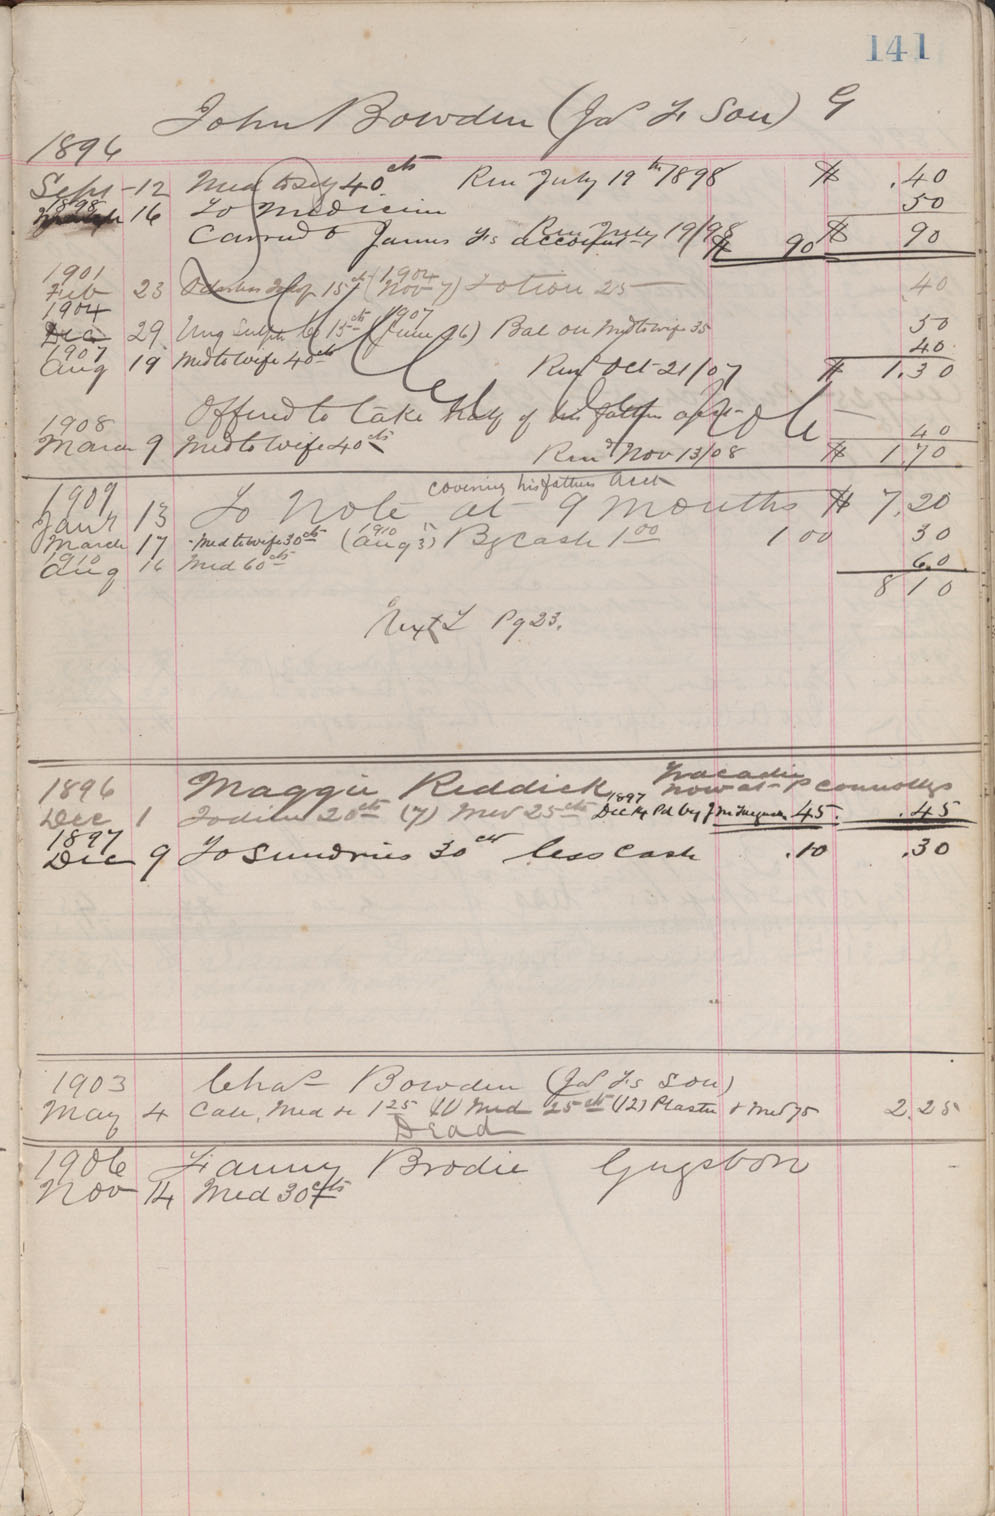 141
John Bowden (Jas F's Son) G
1896
Sept 12 Med to self 40 cts Ren July 19th 1898 $ .40
1898
16 To Medicine 50
Ren July 19/98
Carried to James F's account $ 90 $ 90
1901
Feb 23 15 cts (1904 Nov 7) Lotion 25 40
1904
Dec 29 Ung Sulph 15 cts (1907 June 26) Bal on Med to wife 35 50
40
1907
Aug 19 Med to wife 40 cts Rend Oct 21/07 $ 1.30
Offered to take half of his fathers acct
Cld by Note
1908 40
March 9 Med to wife 40 cts Rend Nov 13/08 $ 1.70
1909 covering his fathers acct
Jany 13 To Note at 9 months $ 7.20
March 17 Med to wife 30 cts (1910 Aug 3) By Cash 1 00 1 00 30
1910
Aug 16 Med 60 cts 60
8 10
Next L Pg 23.
1896 Maggie Reddick Tracadie now at P Connollys
Dec 1 Iodine 20 cts (7) Med 25 cts 1897 Dec 4 Pd by 45 .45
1897
Dec 9 To Sundries 30 cts less Cash .10 .30
1903 Chas Bowden (Jas F's Son)
May 4 Call, Med &c 1 25 Med 25 cts (12) Plaster & Med 75 2.25
Dead
1906 Fanny Brodie Guysboro
Nov 14 Med 30 cts